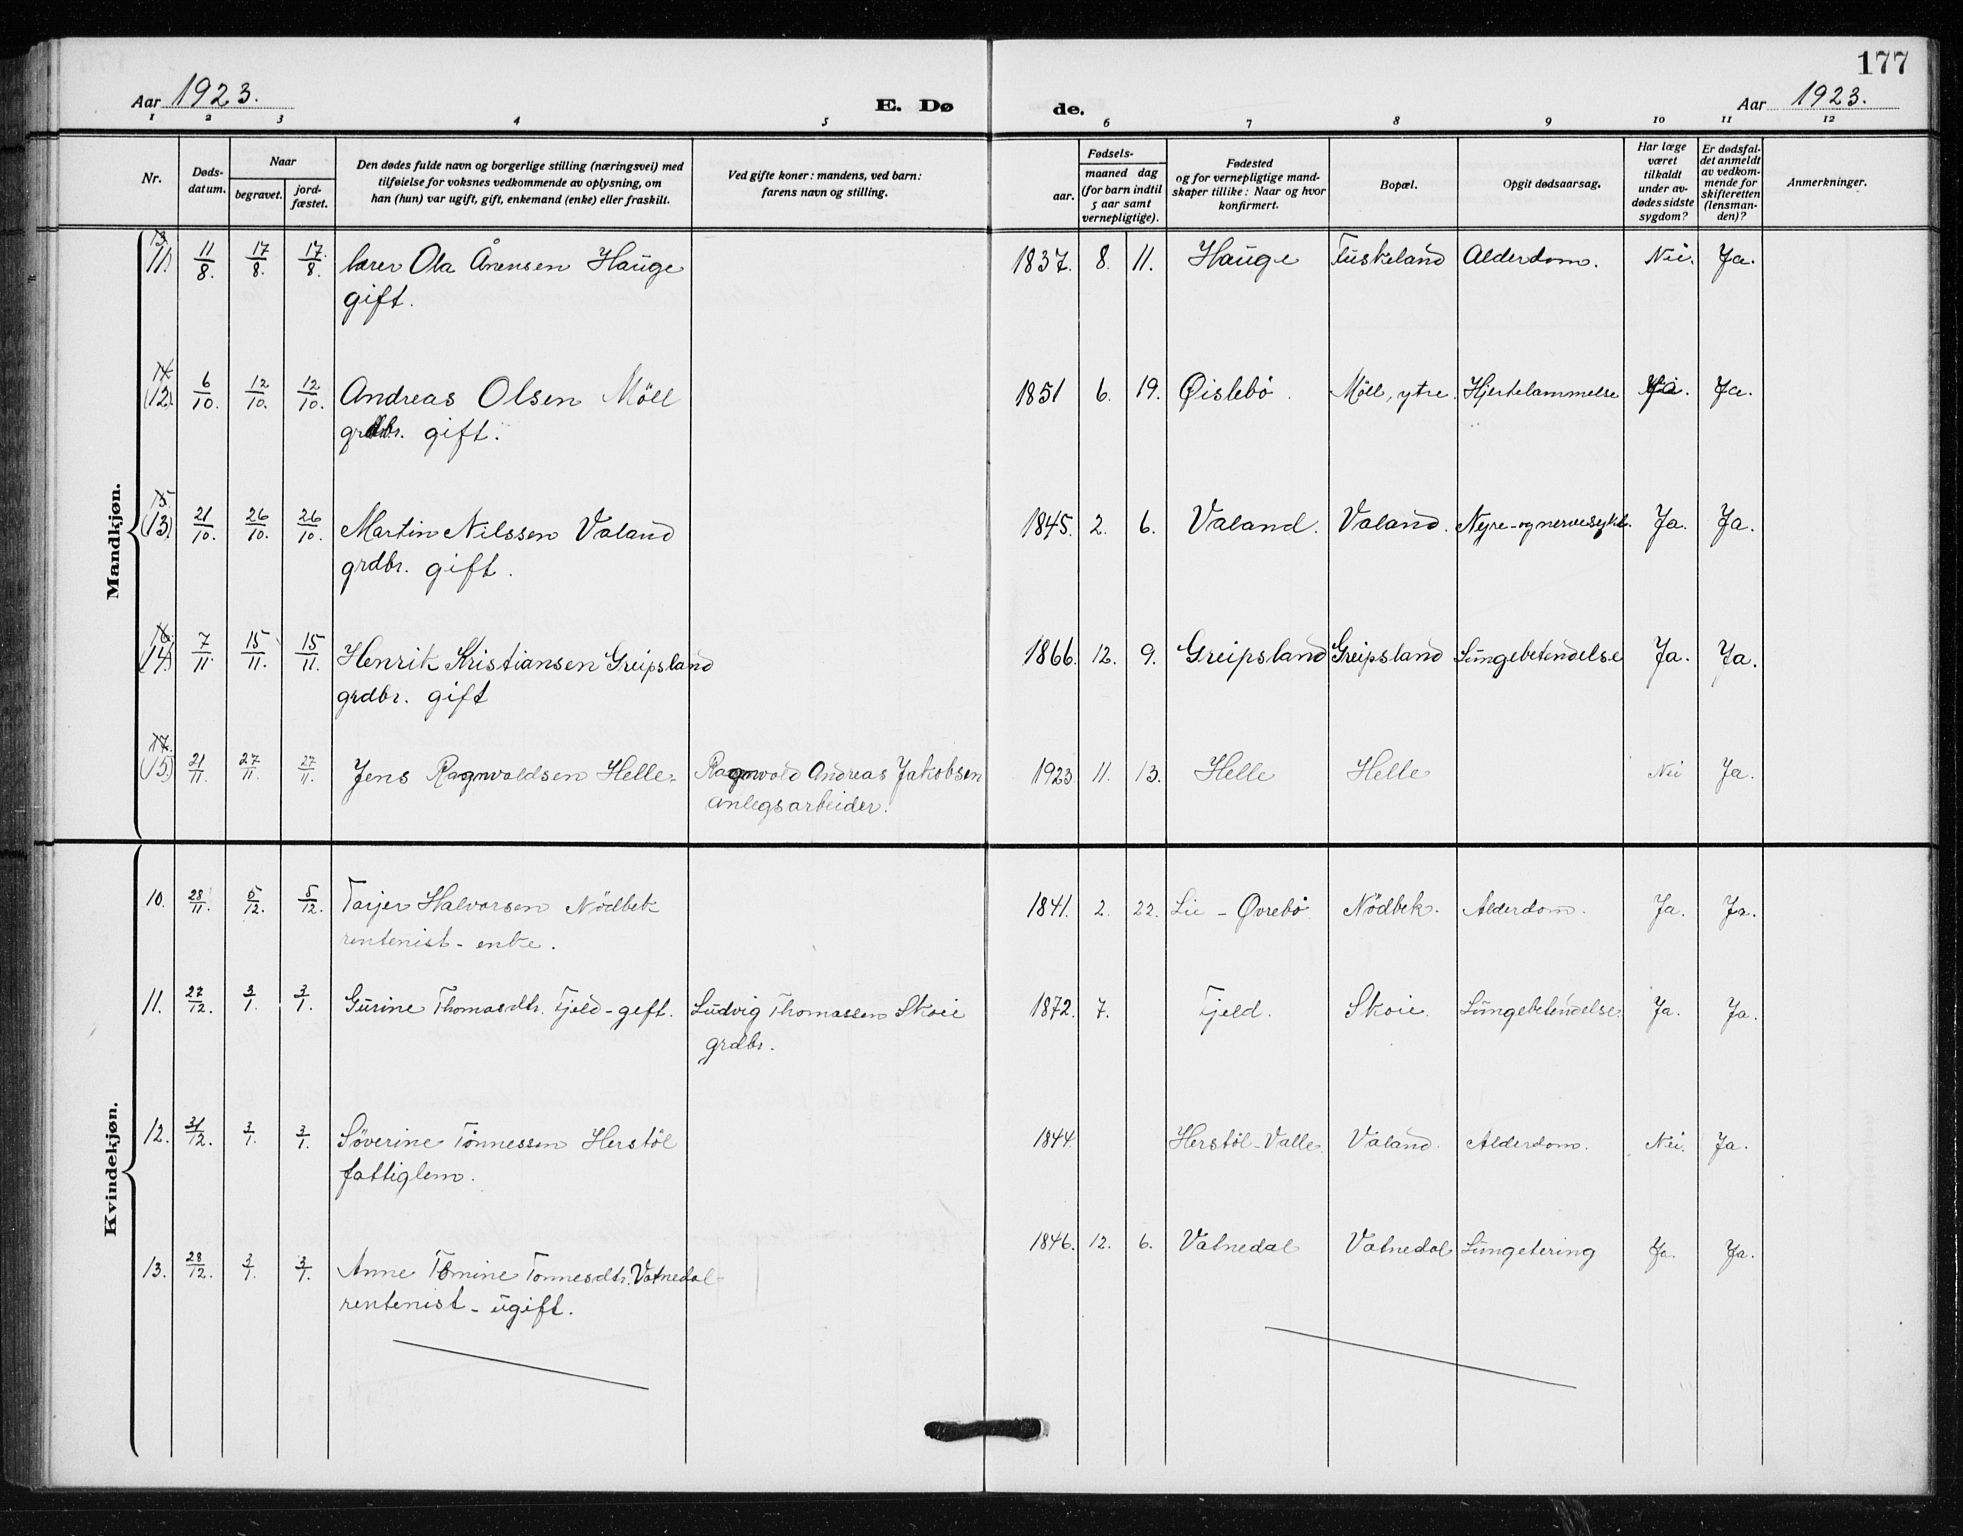 177
Aar 1923.
E. Dø
de.
Aar 1923.
1 2 3 4 5 6 7 8 9 10 11 12
Nr.
Døds-
datum.
Naar
begravet.
jord-
fæstet.
Den dødes fulde navn og borgerlige stilling (næringsvei) med
tilføielse for voksnes vedkommende av oplysning, om
han (hun) var ugift, gift, enkemand (enke) eller fraskilt.
Ved gifte koner: mandens, ved barn:
farens navn og stilling.
Fødsels-
aar.
maaned dag
(for barn indtil
5 aar samt
vernepligtige).
Fødested
og for vernepligtige mand-
skaper tillike: Naar og hvor
konfirmert.
Bopæl.
Opgit dødsaarsag.
Har læge
været
tilkaldt
under av-
dødes sidste
sygdom?
Er dødsfal-
det anmeldt
av vedkom-
mende for
skifteretten
(lensman-
den)?
Anmerkninger.
Mandkjøn.
13
(11) 11/8. 17/8. 17/8. lærer Ola Ånensen Hauge 1837. 8. 11. Hauge Fuskeland Alderdom. Nei. Ja.
gift.
14
(12) 6/10. 12/10. 12/10. Andreas Olsen Möll 1851 6. 19. Øislebö. Möll, ytre. Hjertelammelse Ja. Ja.
grdbr. gift.
15
(13) 21/10. 26/10. 26/10. Martin Nilssen Valand 1845. 2. 6. Valand. Valand. Nyre- og nervesykd. Ja. Ja.
grdbr. gift.
16
(14) 7/11. 15/11. 15/11. Henrik Kristiansen Greipsland 1866. 12. 9. Greipsland Greipsland Lungebetendelse Ja. Ja.
grdbr. gift
17.
(15) 21/11. 27/11. 27/11. Jens Ragnvaldsen Helle. Ragnvald Andreas Jakobsen 1923 11. 13. Helle Helle Nei Ja.
anlegsarbeider.
Kvindekjøn.
10. 28/11. 5/12. 5/12. Tarjer Halvorsen Nödbek 1841. 2. 22. Lie - Øvrebö. Nödbek. Alderdom. Ja. Ja.
rentenist - enke.
11. 27/12. 3/1. 3/1. Gurine Thomasdtr. Fjeld - gift. Ludvig Thomassen Skoie 1872. 7. Fjeld. Skoie. Lungebetendelse. Ja. Ja.
grdbr.
12. 31/12. 3/1. 3/1. Söverine Tönnessen Herstöl 1844. Herstöl - Valle. Valand. Alderdom. Nei. Ja.
fattiglem.
13. 28/12. 3/1. 3/1. Anne Tomine Tonnesdtr. Vatnedal - 1846. 12. 6. Vatnedal Vatnedal Lungetering Ja. Ja.
rentenist - ugift.